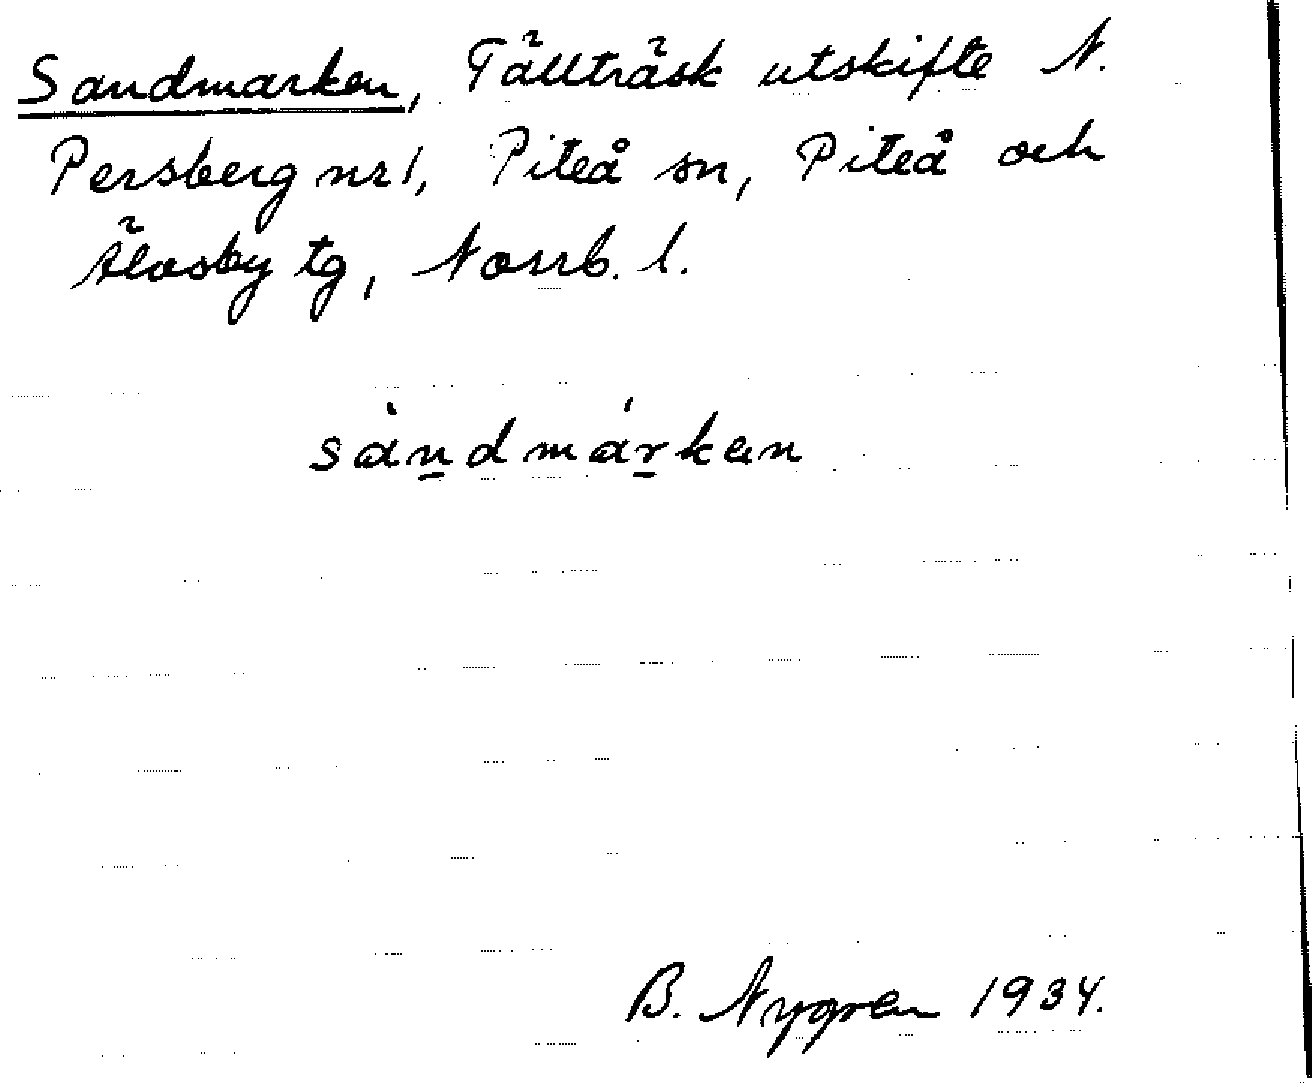 Sandmarken, Tällträsk utskifte N.
Persberg nr 1, Piteå sn, Piteå och
Älvsby tg, Norrb. l.
sàndmárken
B. Nygren 1934.